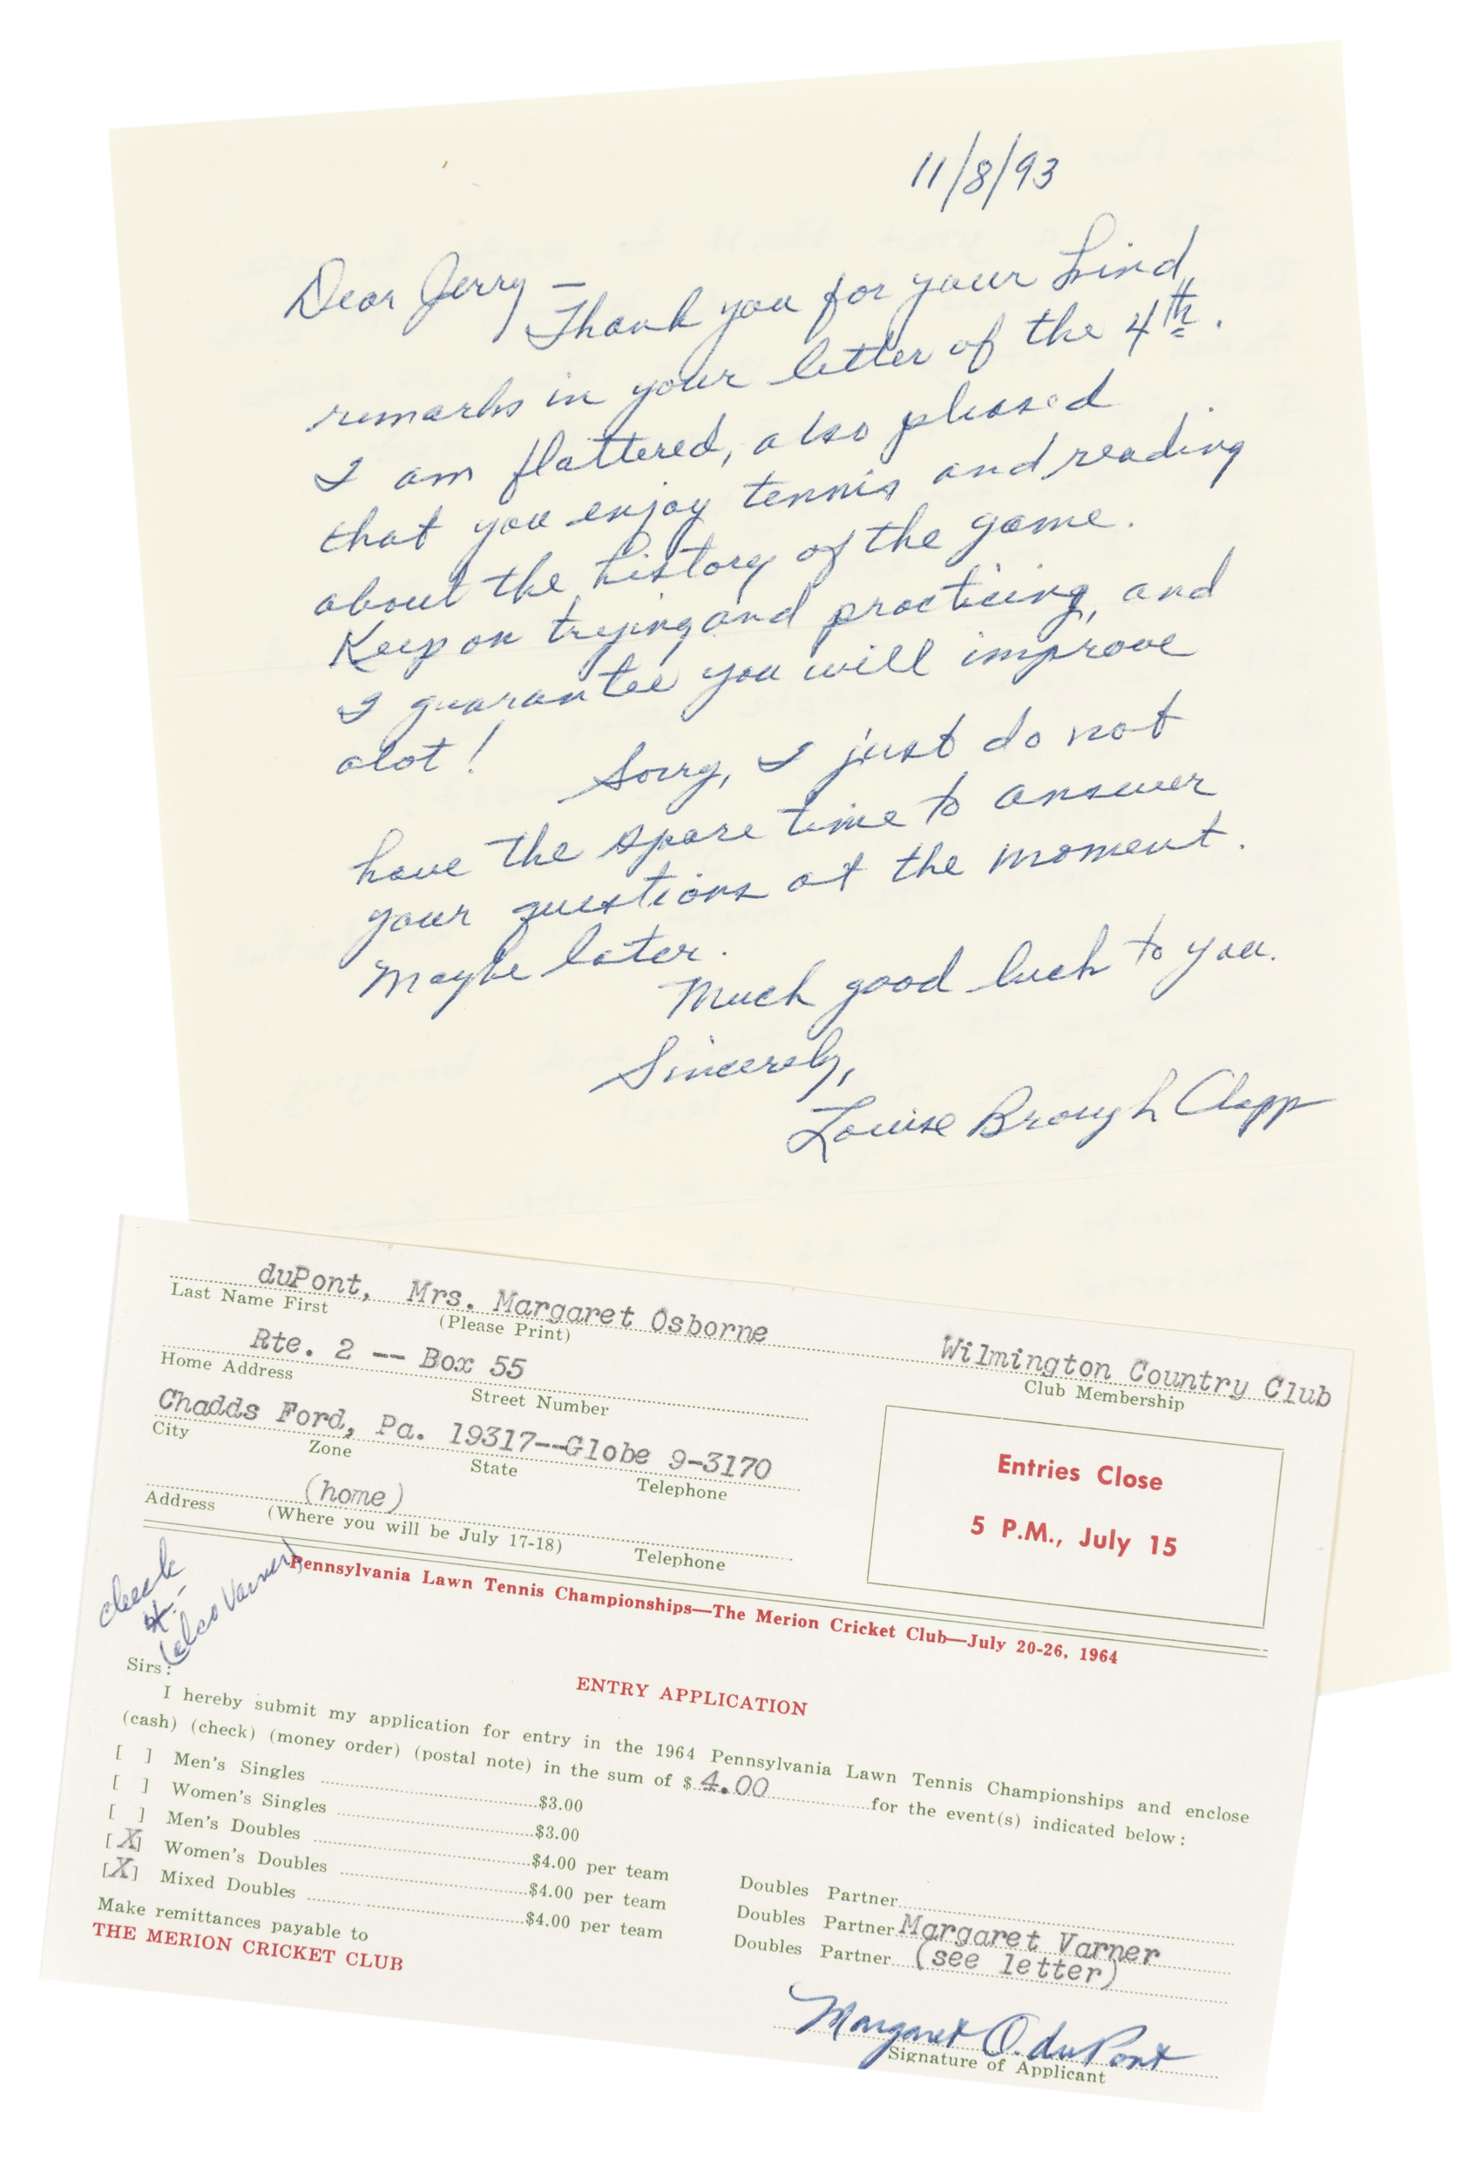 11/8/93
Dear Jerry —
Thank you for your kind
remarks in your letter of the 4th.
I am flattered, also pleased
that you enjoy tennis and reading
about the history of the game.
Keep on trying and practicing, and
I guarantee you will improve
alot!
Sorry, I just do not
have the spare time to answer
your questions at the moment.
Maybe later.
Much good luck to you.
Sincerely,
Louise Brough Clapp
duPont, Mrs. Margaret Osborne
Wilmington Country Club
Last Name First (Please Print)
Club Membership
Rte. 2 -- Box 55
Home Address Street Number
Chadds Ford, Pa. 19317--Globe 9-3170
City Zone State Telephone
(home)
Address (Where you will be July 17-18) Telephone
Entries Close
5 P.M., July 15
check
(also Varner)
Pennsylvania Lawn Tennis Championships—The Merion Cricket Club—July 20-26, 1964
ENTRY APPLICATION
Sirs:
I hereby submit my application for entry in the 1964 Pennsylvania Lawn Tennis Championships and enclose
(cash) (check) (money order) (postal note) in the sum of $ 4.00 for the event(s) indicated below:
[ ] Men's Singles $3.00
[ ] Women's Singles $3.00
[ ] Men's Doubles $4.00 per team Doubles Partner
[X] Women's Doubles $4.00 per team Doubles Partner Margaret Varner
[X] Mixed Doubles $4.00 per team Doubles Partner (see letter)
Make remittances payable to
THE MERION CRICKET CLUB
Margaret O. duPont
Signature of Applicant